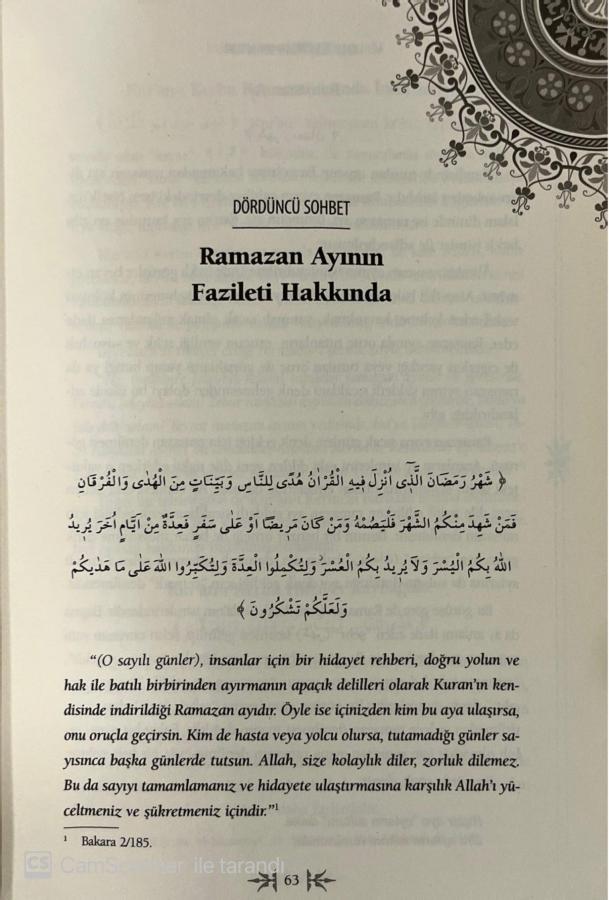 DÖRDÜNCÜ SOHBET
Ramazan Ayının
Fazileti Hakkında
﴿ شَهْرُ رَمَضَانَ الَّذ۪ٓي اُنْزِلَ ف۪يهِ الْقُرْاٰنُ هُدًى لِلنَّاسِ وَبَيِّنَاتٍ مِنَ الْهُدٰى وَالْفُرْقَانِ
فَمَنْ شَهِدَ مِنْكُمُ الشَّهْرَ فَلْيَصُمْهُ وَمَنْ كَانَ مَر۪يضًا اَوْ عَلٰى سَفَرٍ فَعِدَّةٌ مِنْ اَيَّامٍ اُخَرَ يُر۪يدُ
اللّٰهُ بِكُمُ الْيُسْرَ وَلَا يُر۪يدُ بِكُمُ الْعُسْرَۘ وَلِتُكْمِلُوا الْعِدَّةَ وَلِتُكَبِّرُوا اللّٰهَ عَلٰى مَا هَدٰيكُمْ
وَلَعَلَّكُمْ تَشْكُرُونَ ﴾
“(O sayılı günler), insanlar için bir hidayet rehberi, doğru yolun ve
hak ile batılı birbirinden ayırmanın apaçık delilleri olarak Kuran’ın ken-
disinde indirildiği Ramazan ayıdır. Öyle ise içinizden kim bu aya ulaşırsa,
onu oruçla geçirsin. Kim de hasta veya yolcu olursa, tutamadığı günler sa-
yısınca başka günlerde tutsun. Allah, size kolaylık diler, zorluk dilemez.
Bu da sayıyı tamamlamanız ve hidayete ulaştırmasına karşılık Allah’ı yü-
celtmeniz ve şükretmeniz içindir.”¹
¹ Bakara 2/185.
CS CamScanner ile tarandı
63